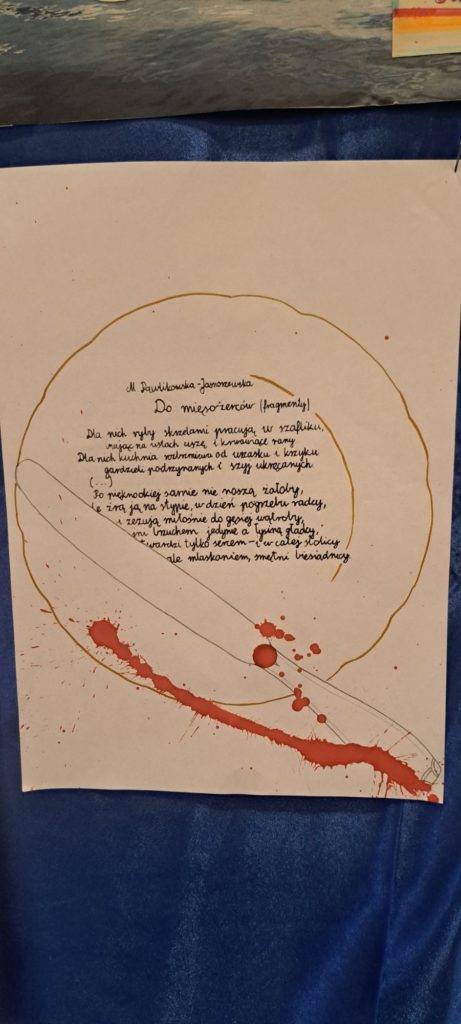 M Pawlikowska-Jasnorzewska
Do mięsożerców (fragmenty)
Dla nich ryby skrzelami pracują w szafliku,
mając na ustach uszę i krwawiące rany
Dla nich kuchnia rozbrzmiewa od wrzasku i krzyku
gardzieli podrzynanych i szyj ukręcanych
(...)
Po pięknookiej sarnie nie noszą żałoby,
żrą ją na stypie, w dzień pogrzebu radcy,
i zezują miłośnie do gęsiej wątroby,
brzuchem jedynie a łysiną gładcy,
twardzi tylko sercem - i w całej stolicy
mlaskaniem, smętni biesiadnicy.